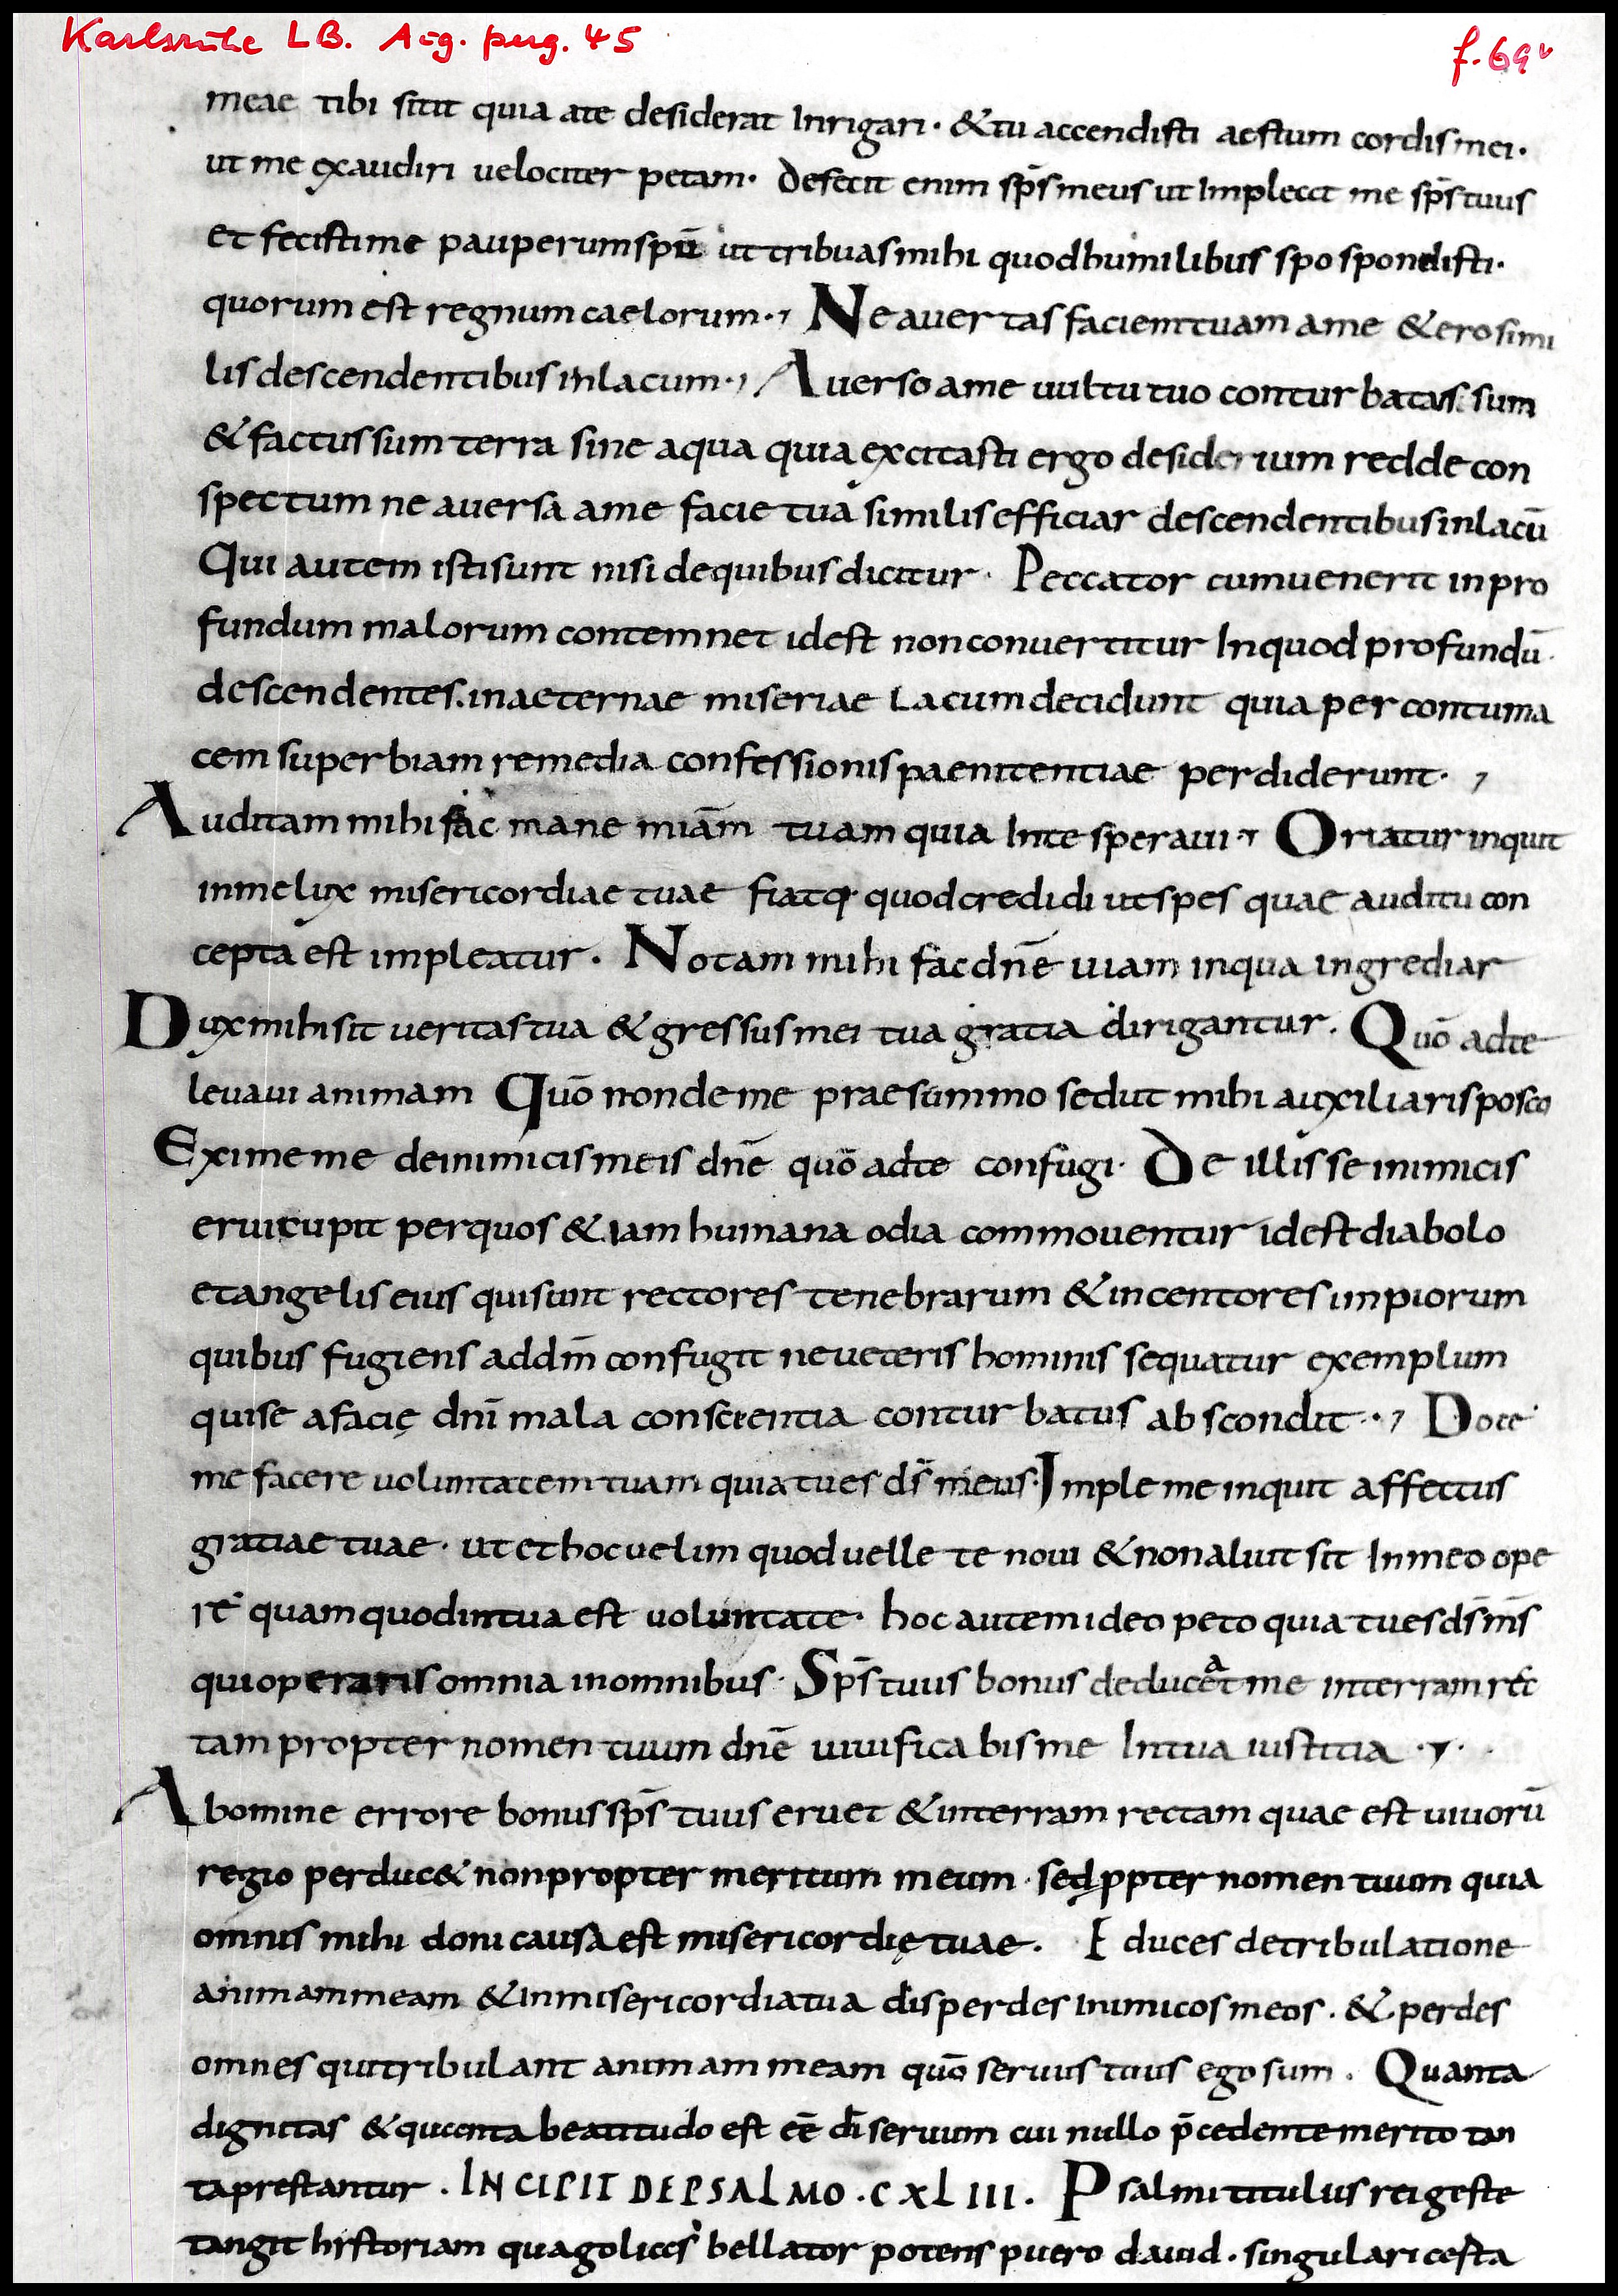 Karlsruhe LB. Aug. perg. 45
f. 69v
meae tibi sitit quia ate desiderat Inrigari · & tu accendisti aestum cordis mei ·
ut me exaudiri uelociter petam · Defecit enim sp̄s meus ut Impleat me sp̄s tuus
et fecisti me pauperum spū ut tribuas mihi quod humilibus spospondisti ·
quorum est regnum caelorum ·, Ne auertas faciem tuam ame & ero simi
lis descendentibus in lacum ·, Auerso ame uultu tuo conturbatus sum
& factus sum terra sine aqua quia excitasti ergo desiderium redde con
spectum ne auersa ame facie tua similis efficiar descendentibus in lacū
Qui autem isti sunt nisi de quibus dicitur · Peccator cum uenerit in pro
fundum malorum contemnet id est non conuertitur In quod profundū ·
descendentes. in aeternae miseriae lacum decidunt quia per contuma
cem superbiam remedia confessionis paenitentiae perdiderunt · ,
Auditam mihi fac mane miām tuam quia Inte speraui ·, Oriatur inquit
in me lux misericordiae tuae fiatq· quod credidi ut spes quae auditu con
cepta est impleatur · Notam mihi fac dnē uiam in qua ingrediar
Dux mihi sit ueritas tua & gressus mei tua gratia dirigantur. Quō ad te
leuaui animam Quō non de me praesummo sed ut mihi auxiliaris posco
Exime me de inimicis meis dnē quō ad te confugi · De illis se inimicis
erui cupit per quos & iam humana odia commouentur id est diabolo
et angelis eius qui sunt rectores tenebrarum & incentores impiorum
quibus fugiens ad dm̄ confugit ne ueteris hominis sequatur exemplum
qui se a facię dnī mala conscientia conturbatus abscondit ··, Doce
me facere uoluntatem tuam quia tu es ds̄ meus · Imple me inquit affectus
gratiae tuae · ut et hoc uelim quod uelle te noui & non aliut sit In meo ope
re quam quod in tua est uoluntate · hoc autem ideo peto quia tu es ds̄ ms̄
qui operaris omnia in omnibus · Sp̄s tuus bonus deducet me in terram rec
tam propter nomen tuum dnē uiuificabis me In tua iustitia ·,·
Ab omine errore bonus sp̄s tuus eruet & in terram rectam quae est uiuorū
regio perduc& non propter meritum meum · sed ppter nomen tuum quia
omnis mihi doni causa est misericordię tuae. Educes de tribulatione
animam meam & in misericordia tua disperdes inimicos meos . & perdes
omnes qui tribulant animam meam quō seruus tuus ego sum . Quanta
dignitas & quanta beatitudo est eē dī seruum cui nullo p̄cedente merito tan
ta prestantur . INCIPIT DE PSALMO . CXLIII . Psalmi titulus rei geste
tangit historiam qua golias bellator potens puero dauid . singulari cesta